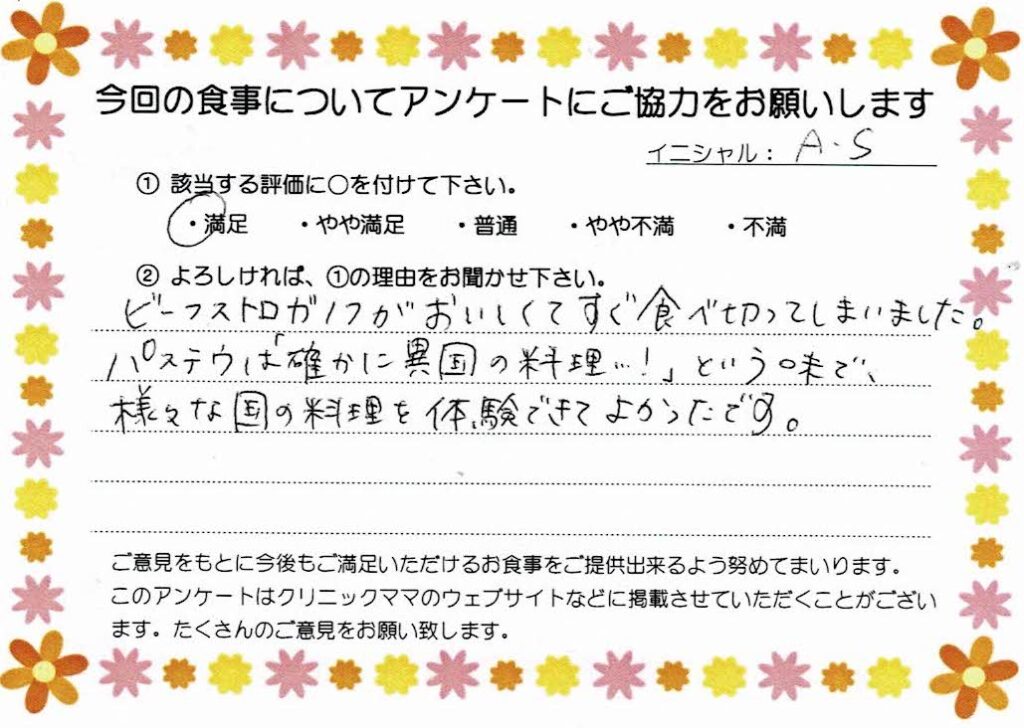 今回の食事についてアンケートにご協力をお願いします
イニシャル： A・S
① 該当する評価に〇を付けて下さい。
・満足 ・やや満足 ・普通 ・やや不満 ・不満
② よろしければ、①の理由をお聞かせ下さい。
ビーフストロガノフがおいしくてすぐ食べ切ってしまいました。
パステウは「確かに異国の料理…!」という味で、
様々な国の料理を体験できてよかったです。
ご意見をもとに今後もご満足いただけるお食事をご提供出来るよう努めてまいります。
このアンケートはクリニックママのウェブサイトなどに掲載させていただくことがござい
ます。たくさんのご意見をお願い致します。